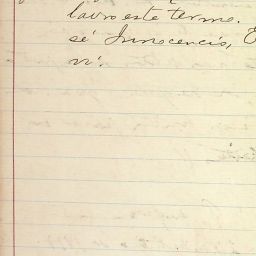 lavro este termo.
sé Innocencio, E
vi.